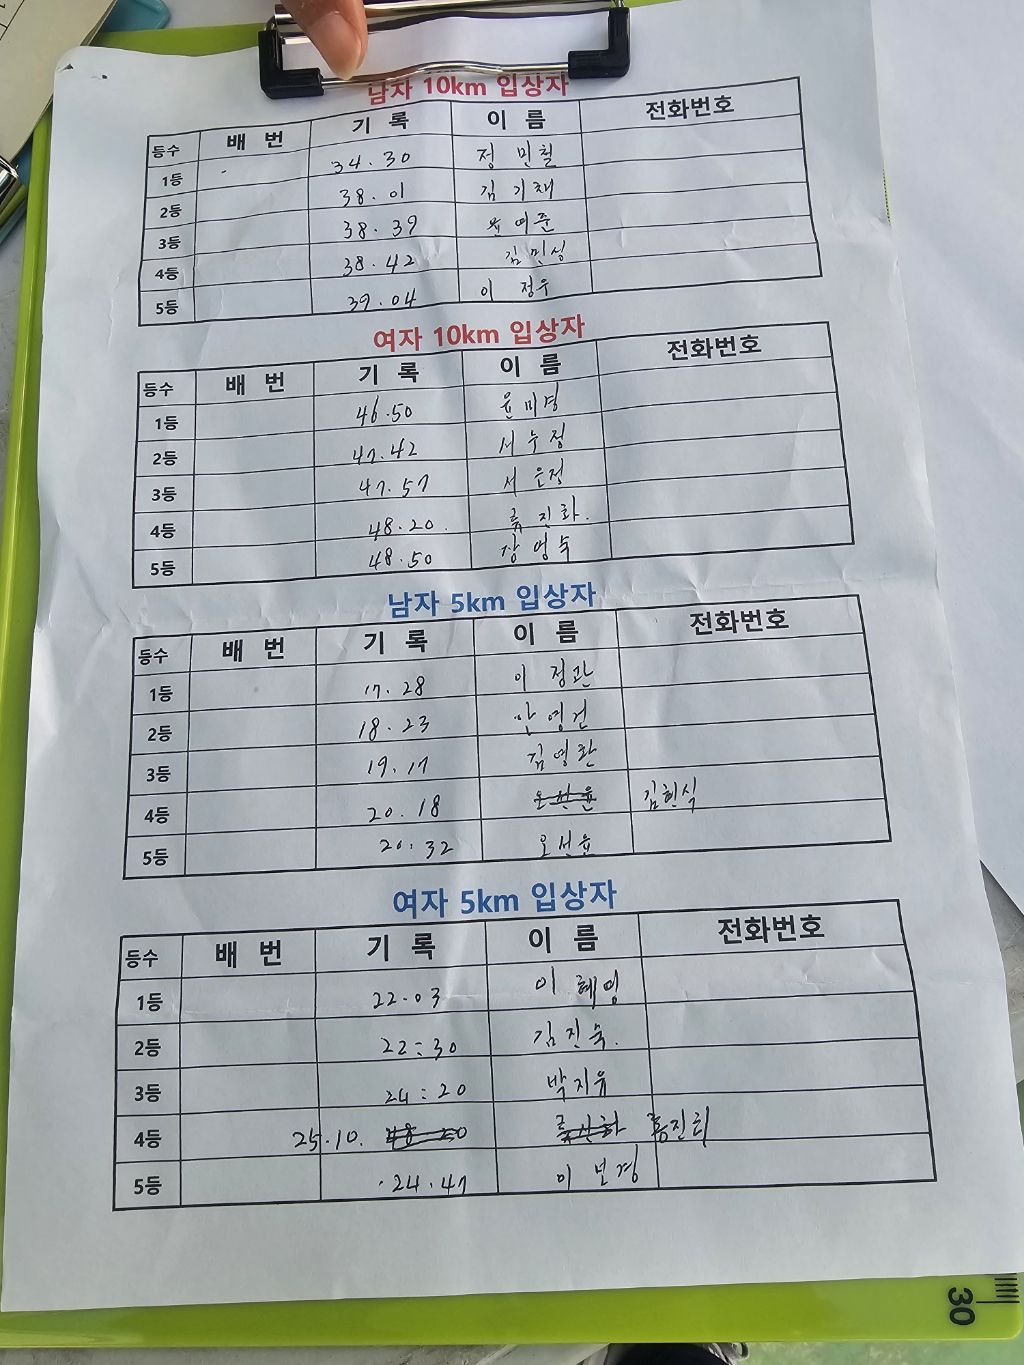 남자 10km 입상자
등수 배 번 기 록 이 름 전화번호
1등 34.30 정 민철
2등 38.01 김 기채
3등 38.39 윤여준
4등 38.42 김민성
5등 39.04 이 정우
여자 10km 입상자
등수 배 번 기 록 이 름 전화번호
1등 46.50 윤미경
2등 47.42 서수정
3등 47.57 서은정
4등 48.20. 류진화.
5등 48.50 장영숙
남자 5km 입상자
등수 배 번 기 록 이 름 전화번호
1등 17.28 이 정관
2등 18.23 안영건
3등 19.17 김영환
4등 20.18 김현식
5등 20:32 오선윤
여자 5km 입상자
등수 배 번 기 록 이 름 전화번호
1등 22.03 이 혜영
2등 22:30 김진숙.
3등 24:20 박지유
4등 25.10. 48 20 홍진희
5등 24.47 이보경
30